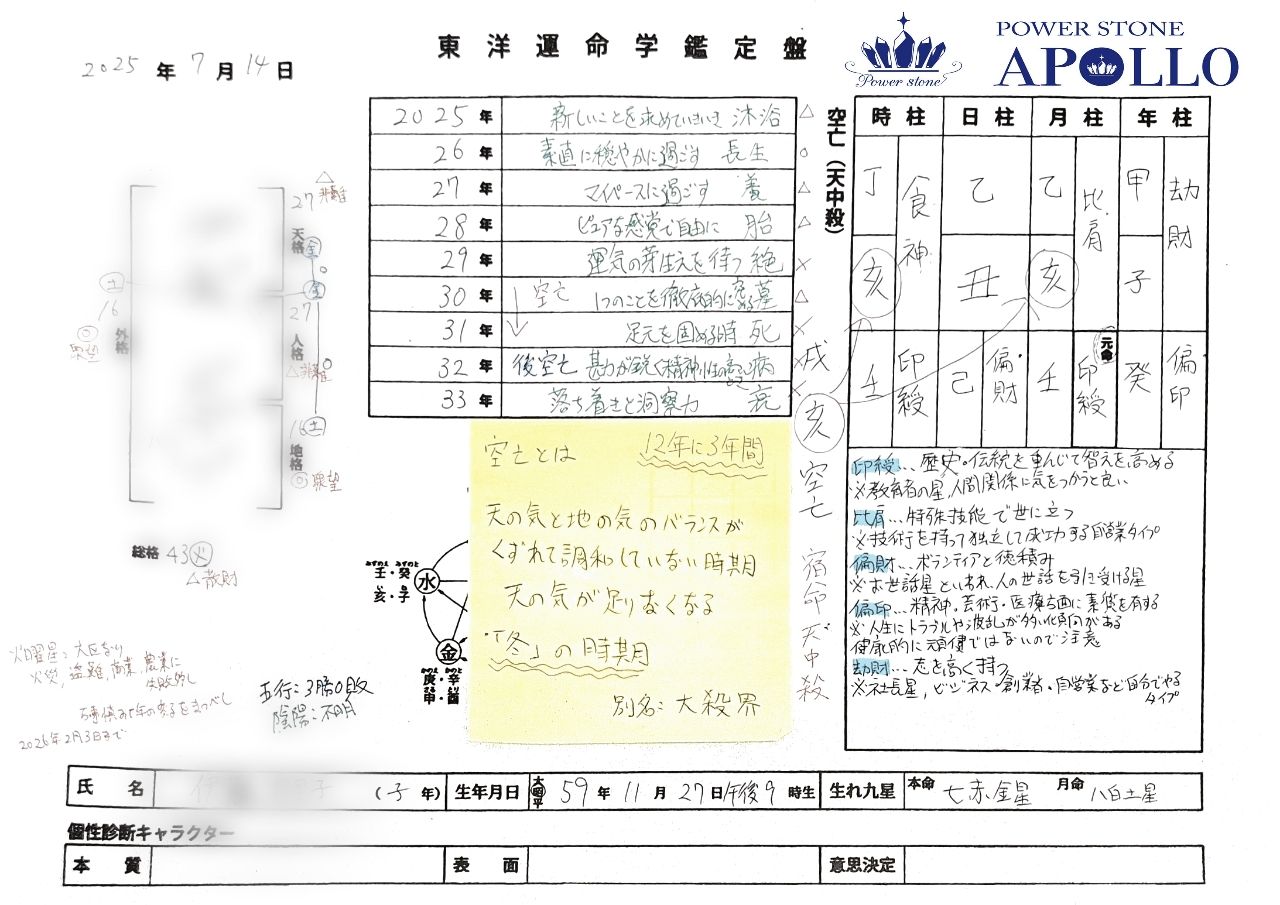 東洋運命学鑑定盤
Power stone
POWER STONE
APOLLO
2025年7月14日
2025年 新しいことを求めていきいき 沐浴 △
26年 素直に穏やかに過ごす 長生 ○
27年 マイペースに過ごす 養 △
28年 ピュアな感覚で自由に 胎 △
29年 運気の芽生えを待つ 絶 ×
30年 空亡 1つのことを徹底的に 墓 △
31年 足元を固める時 死 ×
32年 後空亡 勘が鋭く精神性の高い 病 ×
33年 落ち着きと洞察力 衰 ×
空亡(天中殺)
戌
亥
空亡
宿命天中殺
時柱 日柱 月柱 年柱
丁 食神 乙 乙 比肩 甲 劫財
亥 丑 亥 子
元命
壬 印綬 己 偏財 壬 印綬 癸 偏印
印綬…歴史・伝統を重んじて智えを高める
※教育者の星、人間関係に気をつかうと良い
比肩…特殊技能で世に立つ
※技術を持って独立して成功する自営業タイプ
偏財…ボランティアと徳積み
※お世話星といわれ、人の世話を引き受ける星
偏印…精神・芸術・医療方面に素質を有する
※人生にトラブルや波乱が多い傾向がある
健康的に頑健ではないので注意
劫財…志を高く持つ
※社長星、ビジネス・創業者・自営業など自分でやる
タイプ
△
27 非難
天格 金
金
27
人格
△
土
16
外格
◎
衆望
16 土
地格
◎衆望
総格 43 火
△散財
空亡とは 12年に3年間
天の気と地の気のバランスが
くずれて調和していない時期
天の気が足りなくなる
「冬」の時期
別名:大殺界
みずのえ みずのと
壬・癸
亥・子
水
金
かのえ かのと
庚・辛
さる とり
申・酉
火曜星:大凶なり
火災、盗難、商業、農業に
失敗多し
2026年2月3日まで
五行:3勝0敗
陰陽:不明
氏名 (子年) 生年月日 大昭平 59年11月27日午後9時生 生れ九星 本命 七赤金星 月命 八白土星
個性診断キャラクター
本質 表面 意思決定